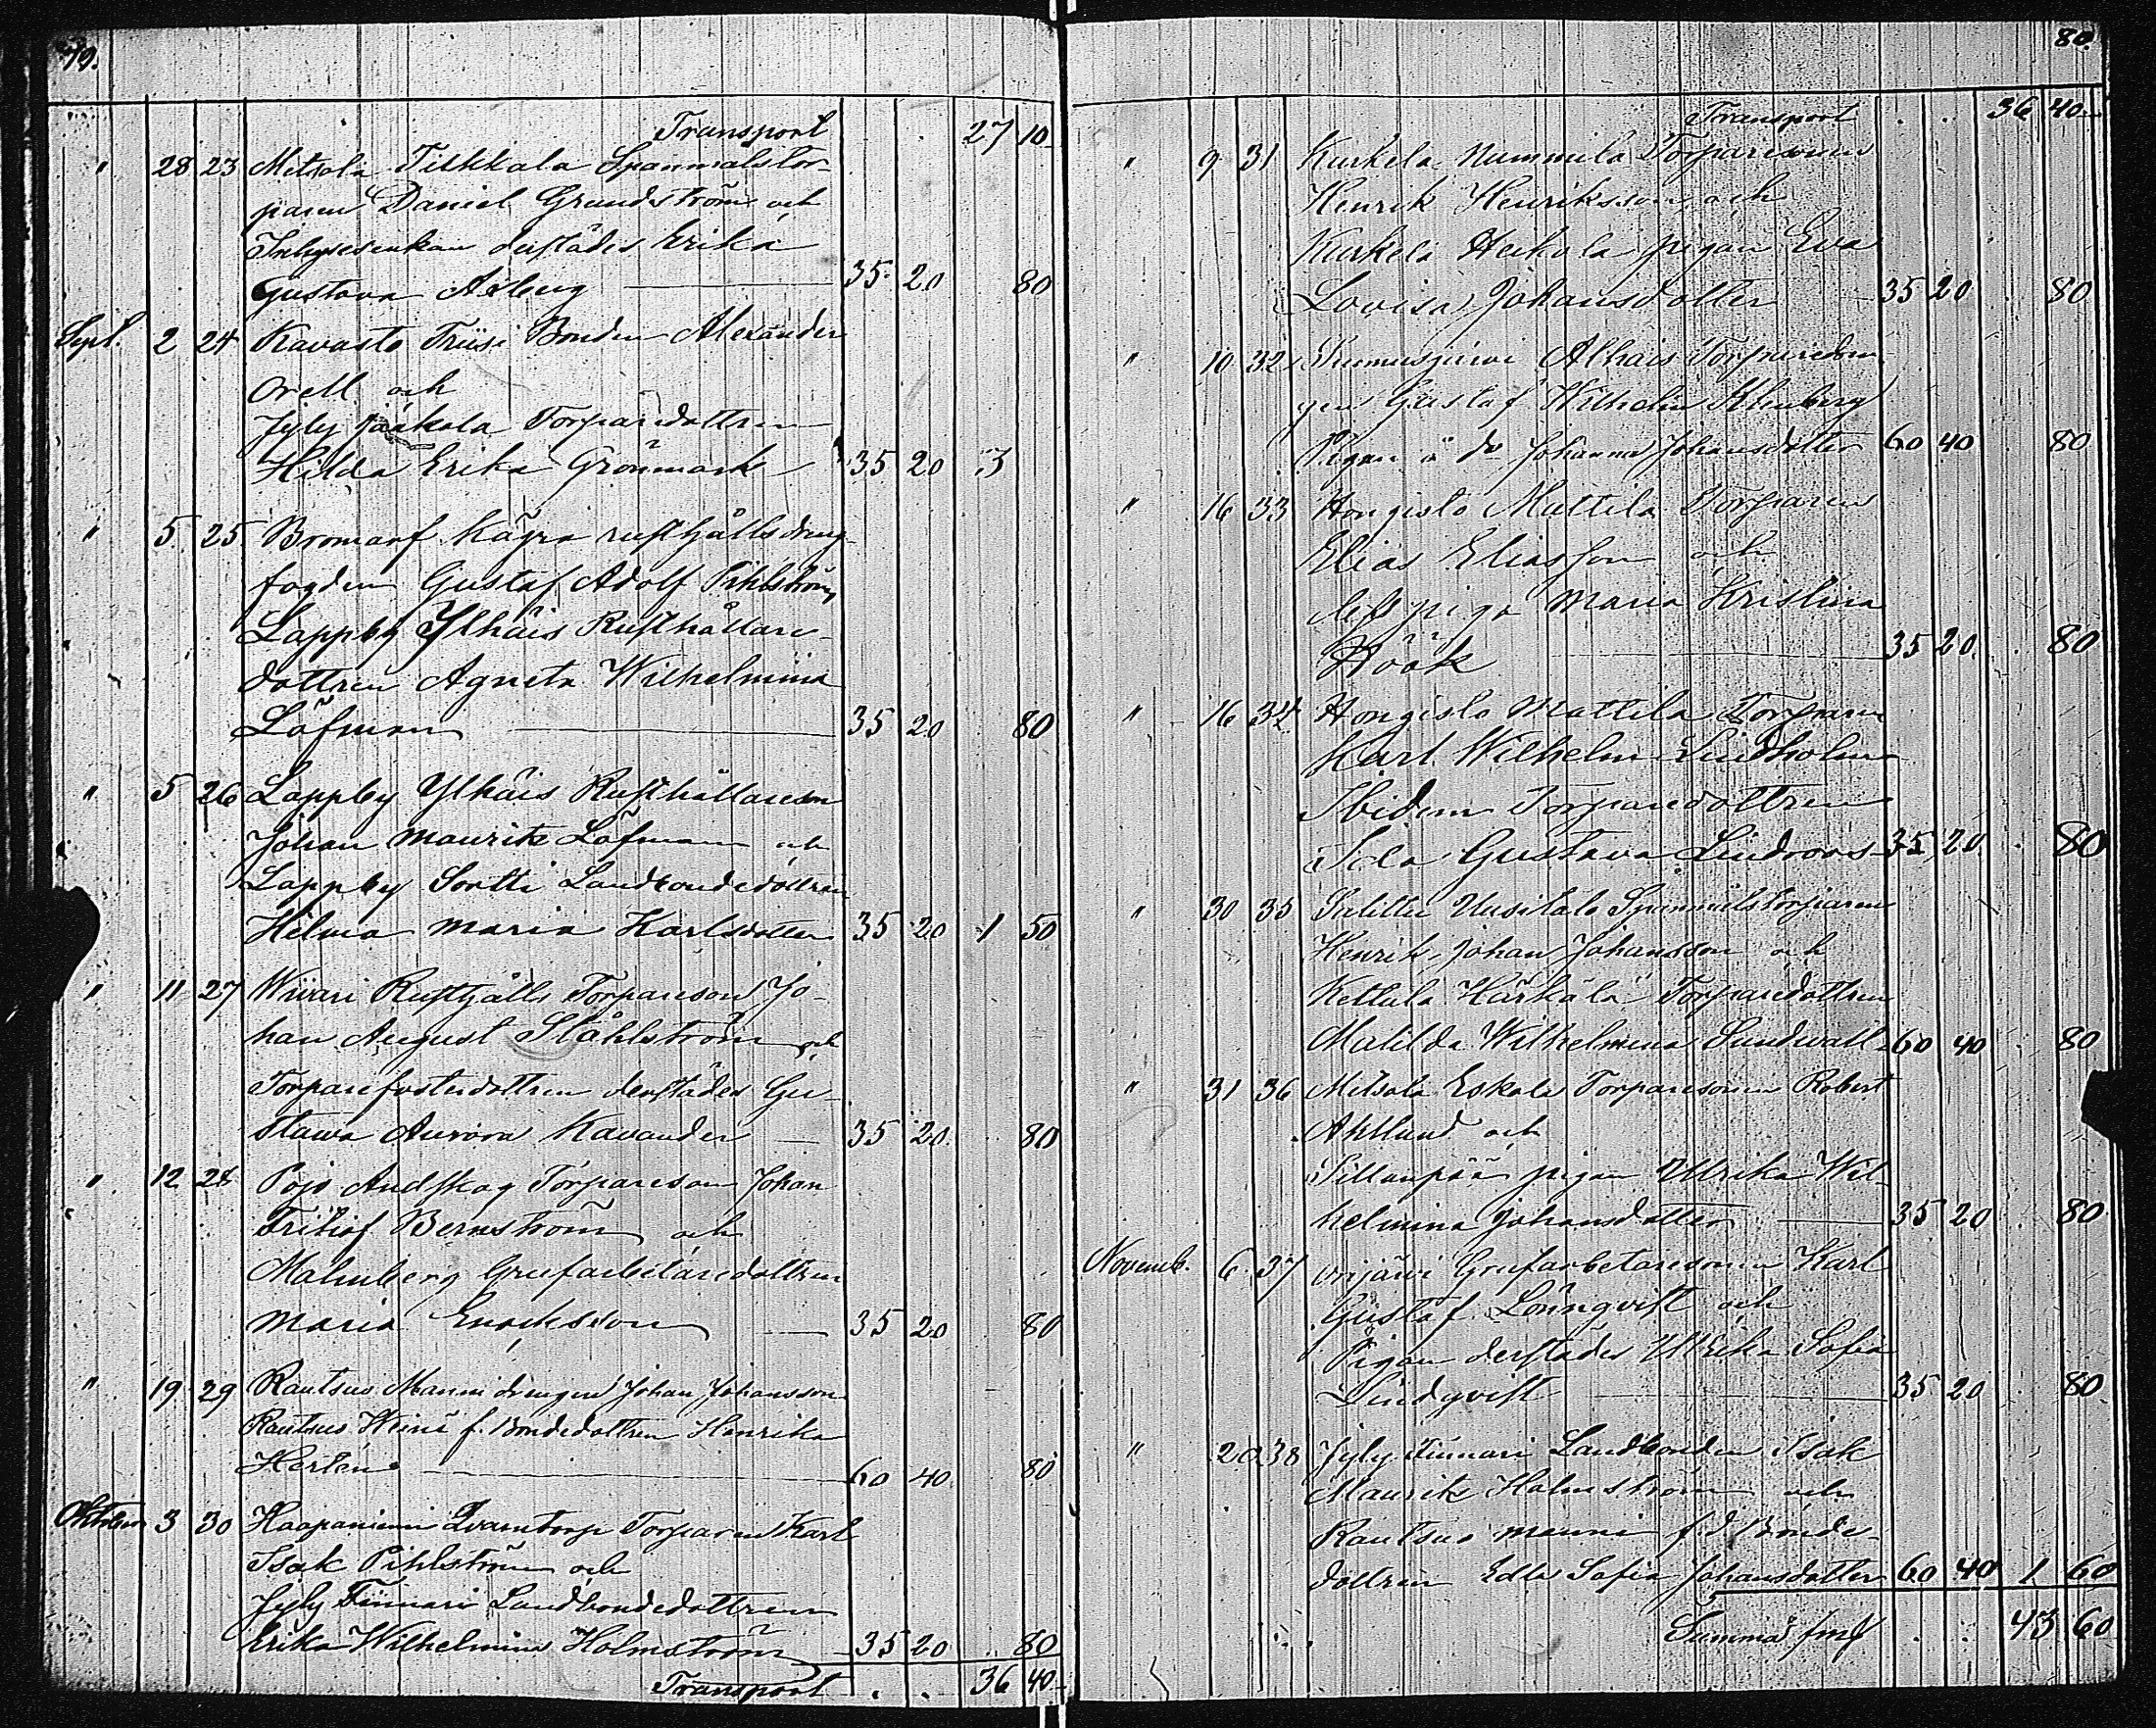 79.
Transport 27 10
" 28 23 Metsola Tikkala Spanmålstor-
paren Daniel Grundström och
Inhyseenkan derstädes Erika
Gustava Åberg 35 20 80
Sept. 2 24 Kavasto Friisi Bonden Alexander
Orell och
Jyly Jaakola Torparedottren
Hilda Erika Grönmark 35 20 3
" 5 25 Bromarf Kågra rusthållsdreng-
fogden Gustaf Adolf Pihlström,
Lappby Ylhäis Rusthållare-
dottren Agneta Wilhelmina
Löfman 35 20 80
" 5 26 Lappby Ylhäis Rusthållareson
Johan Maurits Löfman och
Lappby Sortti Landbondedottren
Helma Maria Karlsdotter 35 20 1 50
" 11 27 Wiiari Rusthålls Torpareson Jo-
han August Ståhlström och
Torparefosterdottren derstädes Gu-
stava Aurora Kavander 35 20 80
" 12 28 Pojo Andskog Torpareson Johan
Fritiof Bernström och
Malmberg Grufarbetaredottren
Maria Enoksson 35 20 80
" 19 29 Rautsuo Manni drengen Johan Johansson
Rautsuo Heinä f. Bondedottren Henrika
Herlen 60 40 80
Oktober 3 30 Haapaniemi Qvarntorp Torparen Karl
Isak Pihlström och
Jyly Finnari Landbondedottren
Erika Wilhelmina Holmström 35 20 80
Transport . . 36 40
80.
Transport . . 36 40
" 9 31 Kurkela Nummela Torparesonen
Henrik Henriksson och
Kurkela Heikola pigan Eva
Lovisa Johansdotter 35 20 80
" 10 32 Alhais Torparedren-
gen Gustaf Wilhelm Klenberg
Pigan å do Johanna Johansdotter 60 40 80
" 16 33 Hongisto Mattila Torparen
Elias Eliasson och
dess piga Maria Kristina
Höök 35 20 80
" 16 34 Hongisto Mattila Torparen
Karl Wilhelm Lindholm
Ibidem Torparedottren
Ida Gustava Lindroos 35 20 80
" 30 35 Salittu Uusitalo Spanmålstorparen
Henrik Johan Johansson och
Kettula Härkälä Torparedottren
Matilda Wilhelmina Sundwall 60 40 80
" 31 36 Metsola Eskola Torparesonen Robert
Ahllund och
Sillanpää pigan Ulrika Wil-
helmina Johansdotter 35 20 80
Novemb. 6 37 Orijärvi Grufarbetaresonen Karl
Gustaf Lönnqvist och
Pigan derstädes Ulrika Sofia
Lindqvist 35 20 80
" 20 38 Jyly Finnari Landbonden Isak
Maurits Holmström och
Rautsuo Manni f.d. Bonde-
dottren Edla Sofia Johansdotter 60 40 1 60
Summa fmk . . 43 60